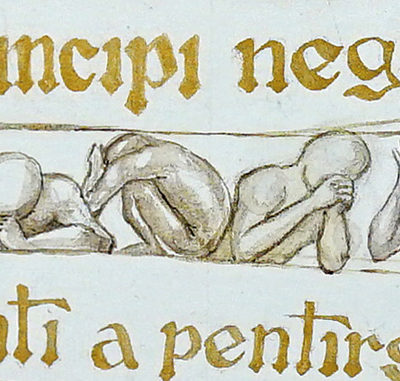 incipi neg
nti a pentirs